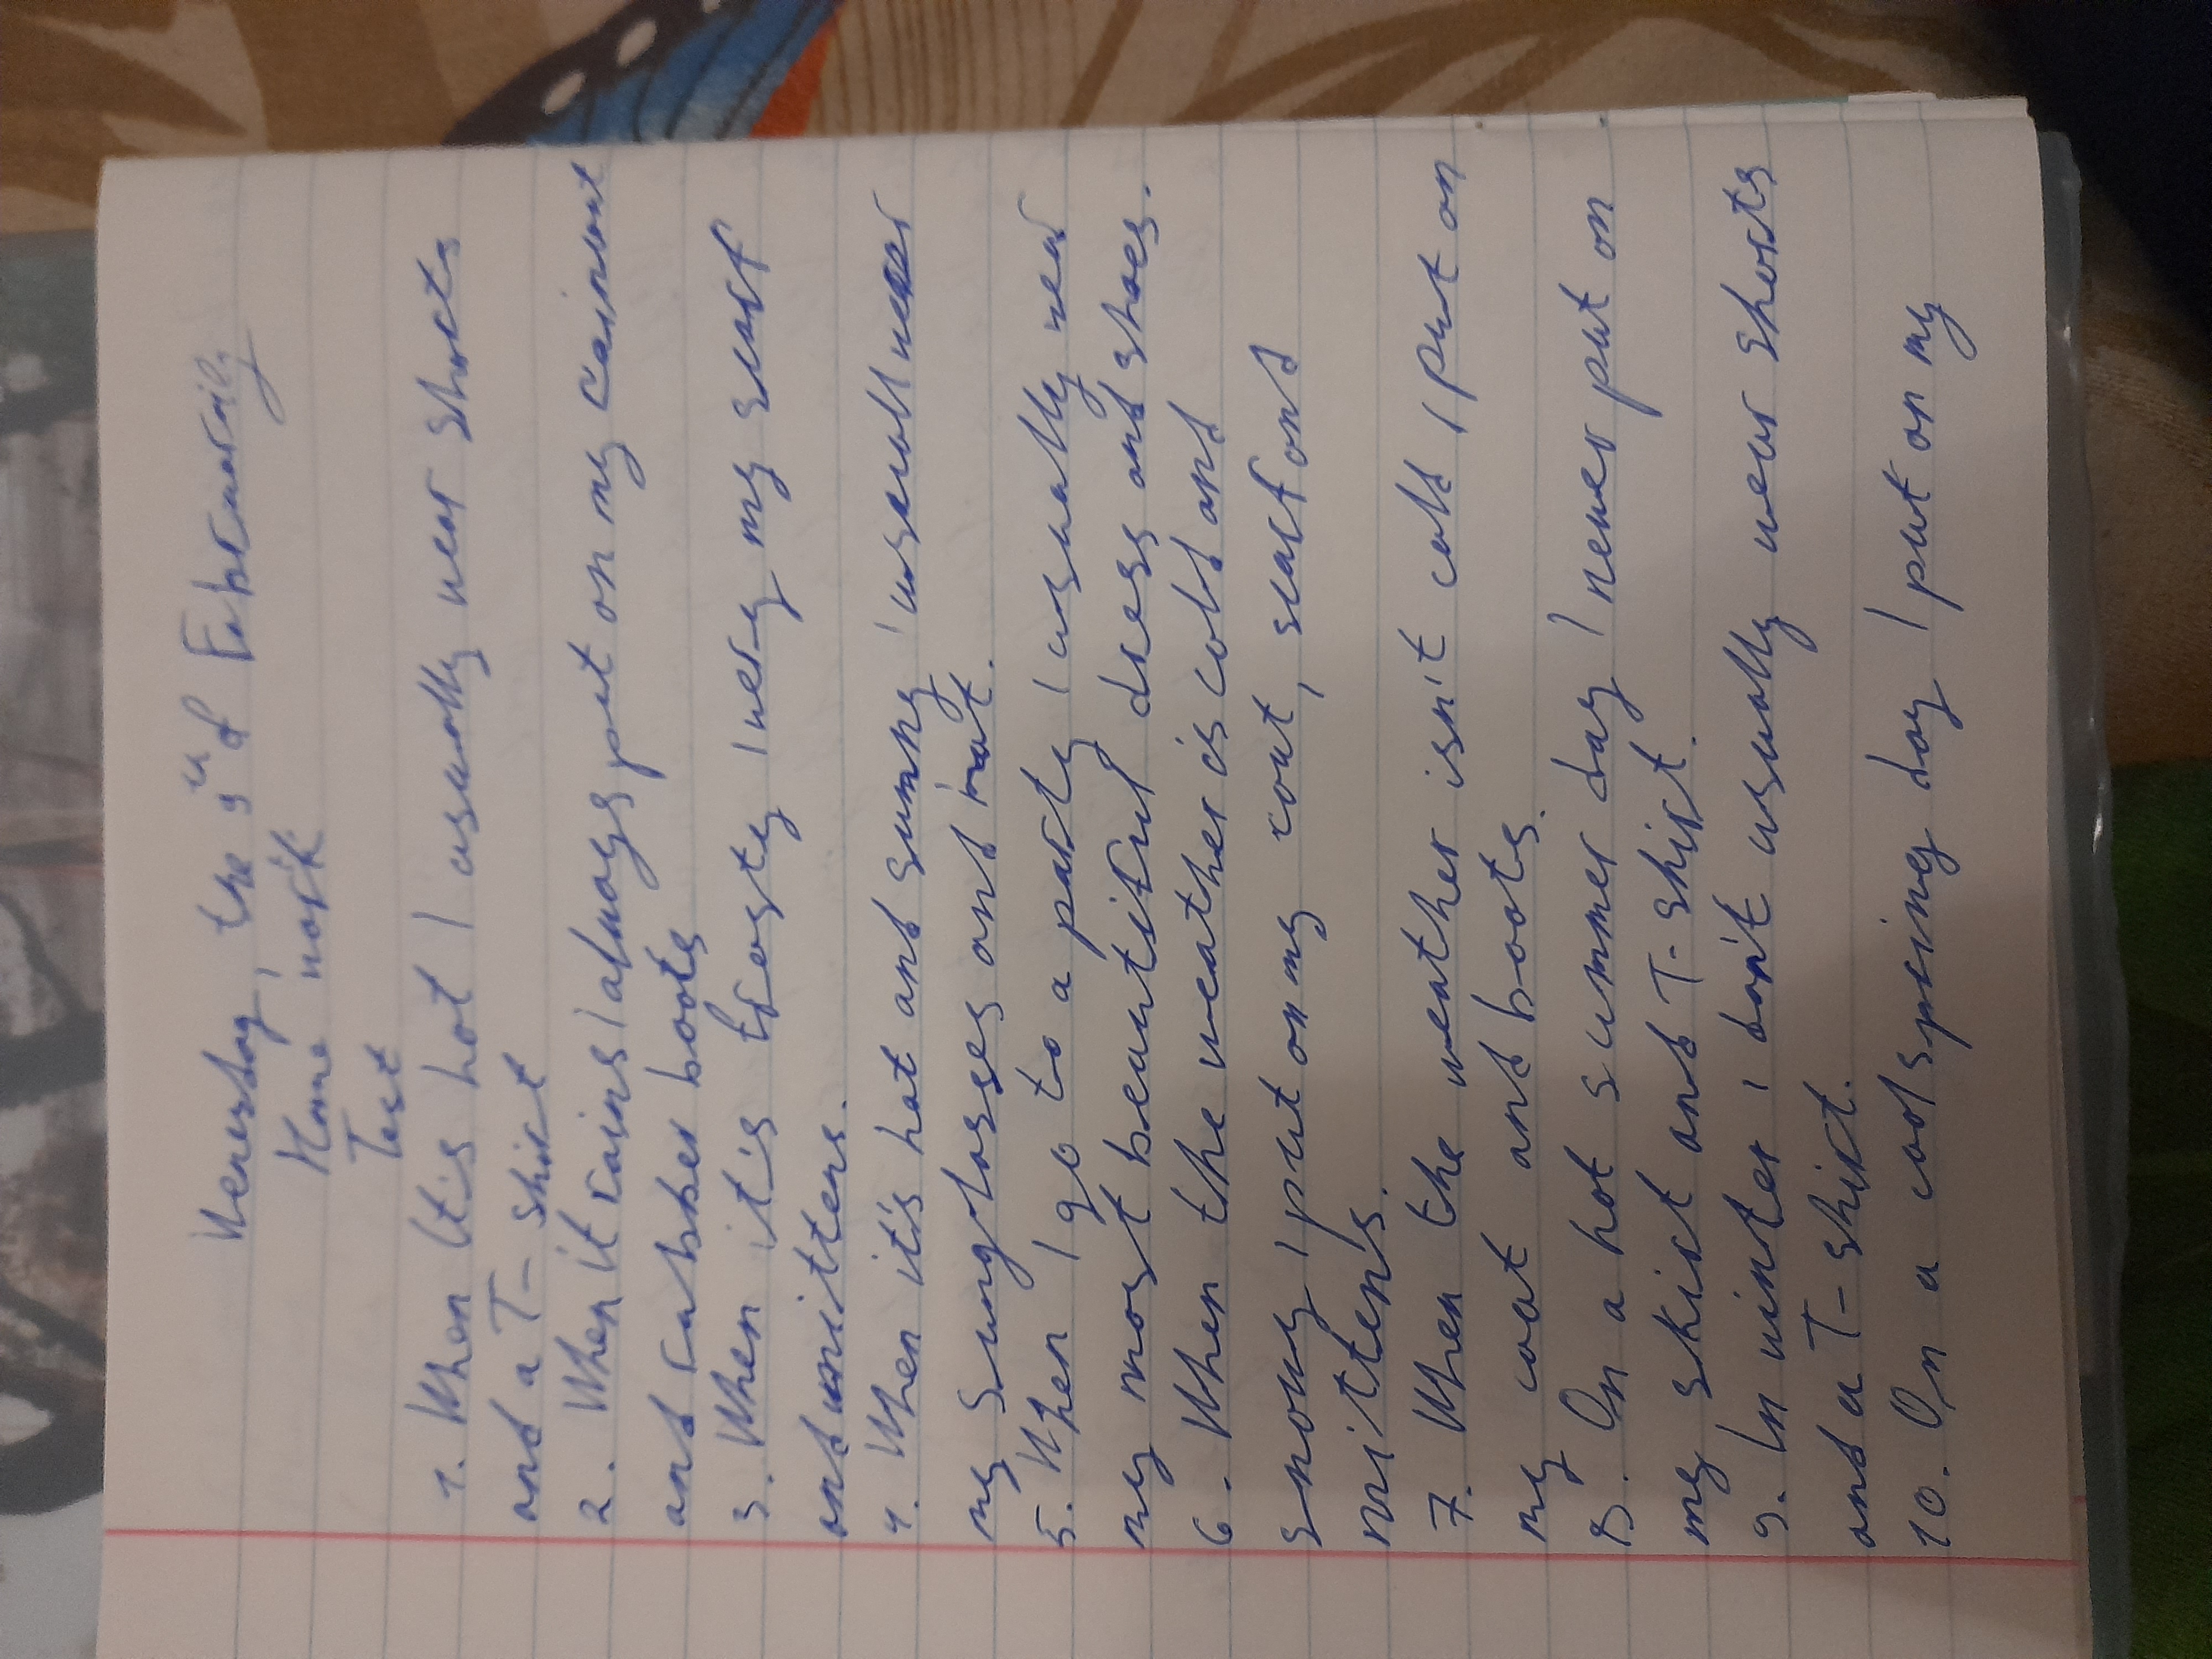 Wenersday, the 9th of Februarily
Home work
Test
1. When it's hot I usually wear shorts
and a T-shirt
2. When it rains I always put on my rainwat
and rubber boots
3. When it's frosty I wery my scarf
and mitters.
4. When it's hot and sunny I usuall wear
my sunglasses and hat.
5. When I go to a party I usually wear
my most beautiful dress and shoes.
6. When the weather is cold and
snowy I put on my coat, scarf and
mittens.
7. When the weather isn't cold I put on
my coat and boots.
8. On a hot summer day I never put on
my skirt and T-shirt.
9. In winter I don't usually wear shorts
and a T-shirt.
10. On a cool spring day I put on my